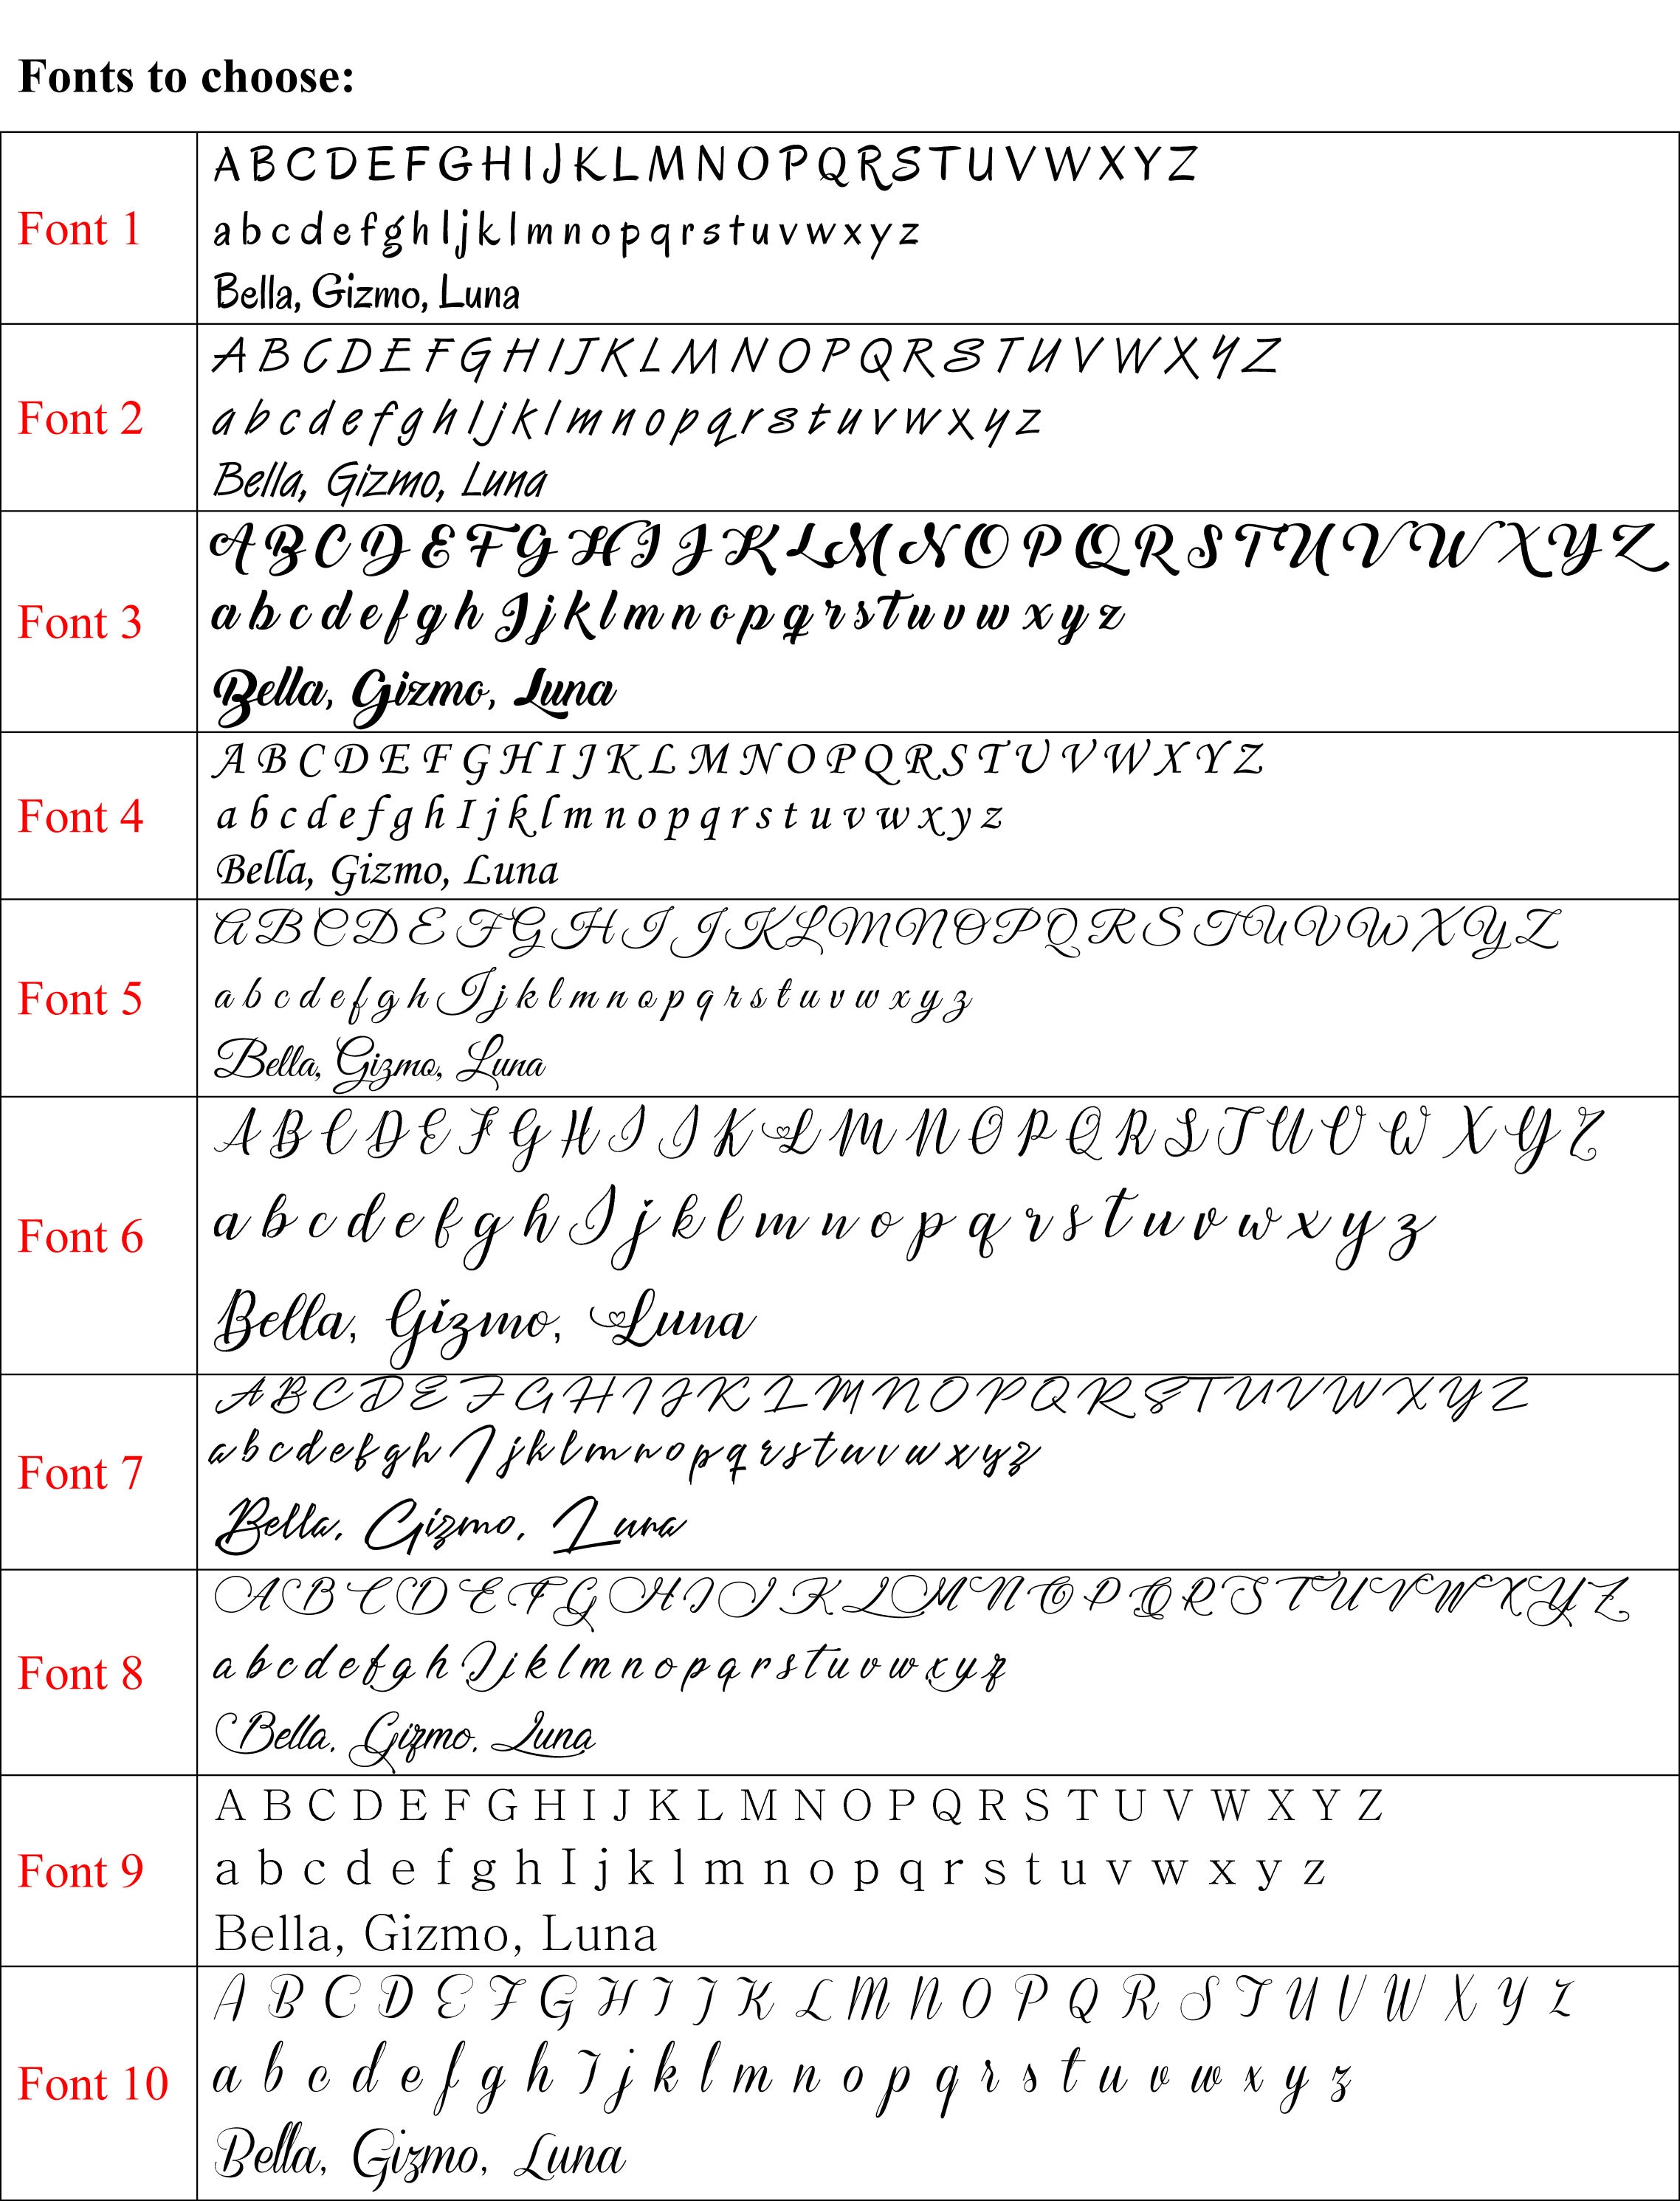 Fonts to choose:
Font 1
A B C D E F G H I J K L M N O P Q R S T U V W X Y Z
a b c d e f g h I j k l m n o p q r s t u v w x y z
Bella, Gizmo, Luna
Font 2
A B C D E F G H I J K L M N O P Q R S T U V W X Y Z
a b c d e f g h I j k l m n o p q r s t u v w x y z
Bella, Gizmo, Luna
Font 3
A B C D E F G H I J K L M N O P Q R S T U V W X Y Z
a b c d e f g h I j k l m n o p q r s t u v w x y z
Bella, Gizmo, Luna
Font 4
A B C D E F G H I J K L M N O P Q R S T U V W X Y Z
a b c d e f g h I j k l m n o p q r s t u v w x y z
Bella, Gizmo, Luna
Font 5
A B C D E F G H I J K L M N O P Q R S T U V W X Y Z
a b c d e f g h I j k l m n o p q r s t u v w x y z
Bella, Gizmo, Luna
Font 6
A B C D E F G H I J K L M N O P Q R S T U V W X Y Z
a b c d e f g h I j k l m n o p q r s t u v w x y z
Bella, Gizmo, Luna
Font 7
A B C D E F G H I J K L M N O P Q R S T U V W X Y Z
a b c d e f g h I j k l m n o p q r s t u v w x y z
Bella, Gizmo, Luna
Font 8
A B C D E F G H I J K L M N O P Q R S T U V W X Y Z
a b c d e f g h I j k l m n o p q r s t u v w x y z
Bella, Gizmo, Luna
Font 9
A B C D E F G H I J K L M N O P Q R S T U V W X Y Z
a b c d e f g h I j k l m n o p q r s t u v w x y z
Bella, Gizmo, Luna
Font 10
A B C D E F G H I J K L M N O P Q R S T U V W X Y Z
a b c d e f g h I j k l m n o p q r s t u v w x y z
Bella, Gizmo, Luna